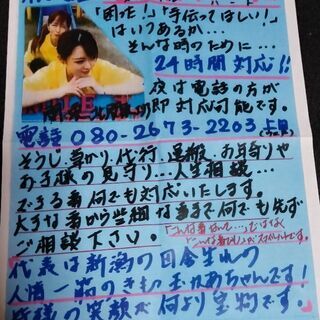 「困た!」「手伝ってほしい!」
はいつあるか…
そんな時のために…
24時間対応!!
夜は電話の方が
即対応可能です。
電話 080-2673-2203
そうじ、草かり、代行、運搬、お見守りや
お子様の見守り…人生相談…
できる事何でも対応いたします。
大きな事から些細な事まで何でも先ず
ご相談下さい。
代表は新潟の田舎生れの
人情一品のきもっ玉かあちゃんです!
皆様の笑顔が何より宝物です。